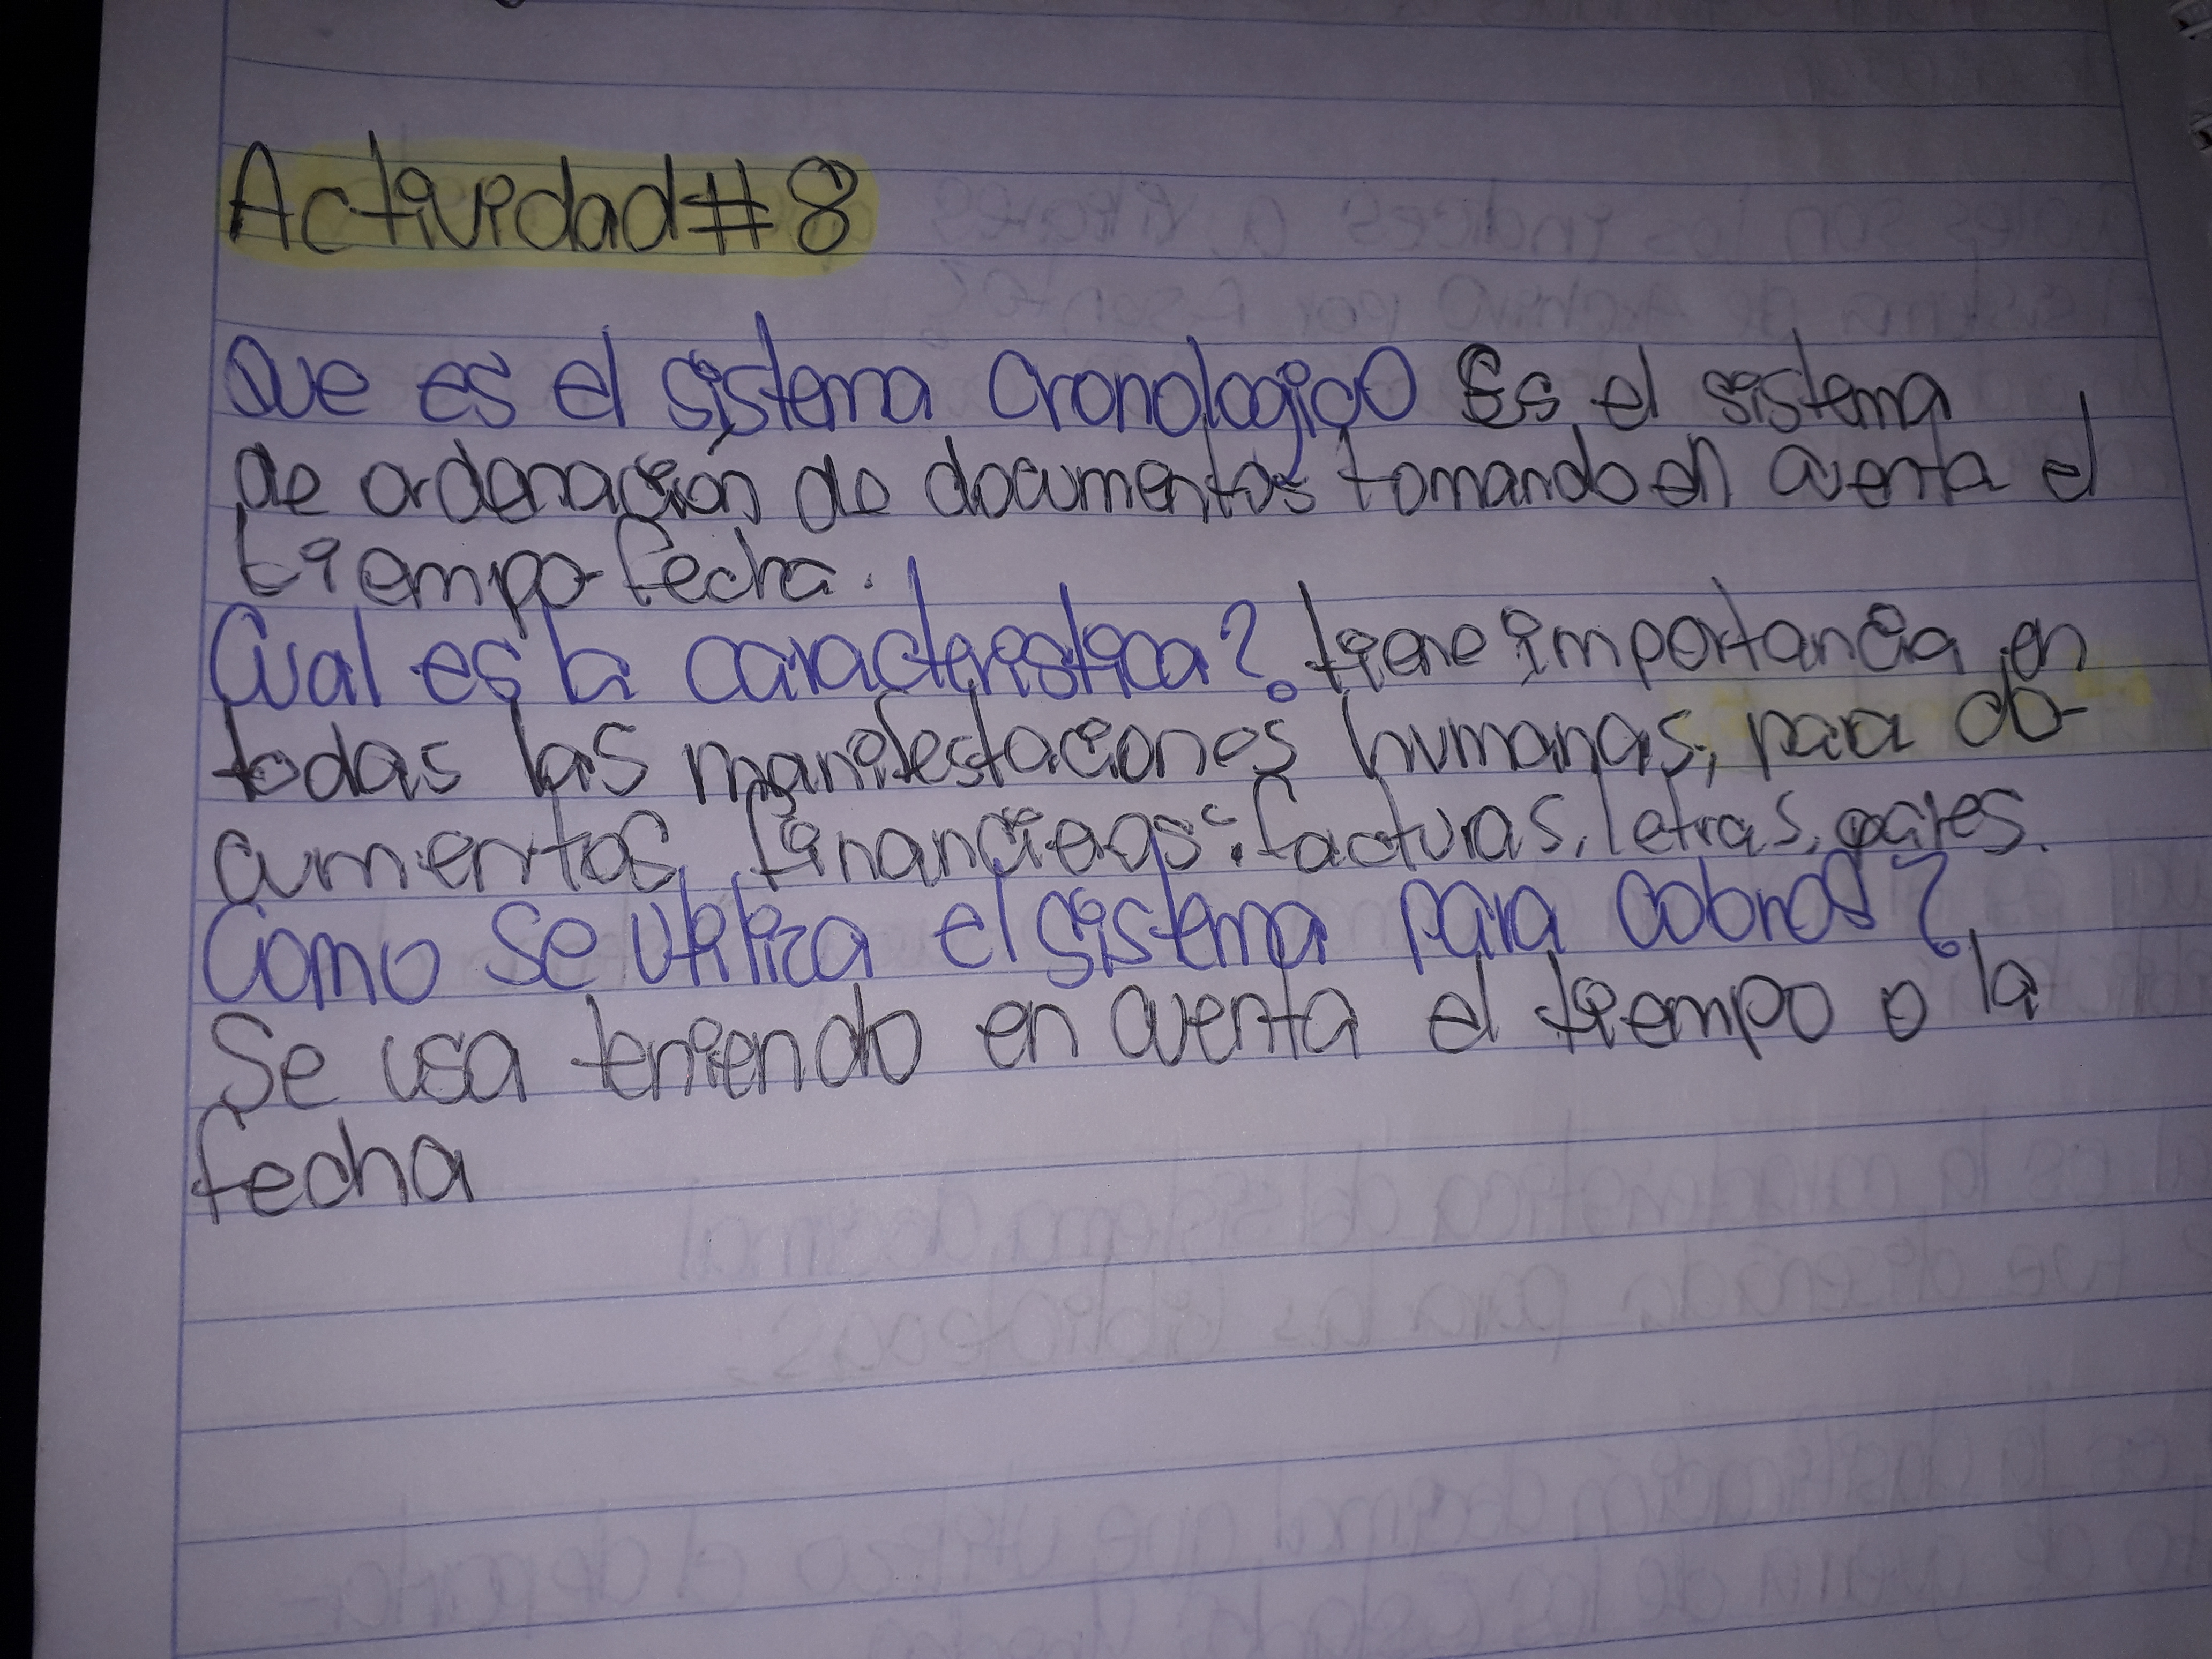 Actividad #8
Que es el sistema Cronologico Es el sistema
de ordenación de documentos tomando en cuenta el
tiempo fecha.
Cual es la caracteristica? tiene importancia en
todas las manifestaciones humanas, para do-
cumentos financieos: facturas, letras,
Como se utiliza el sistema para cobros?
Se usa teniendo en cuenta el tiempo o la
fecha